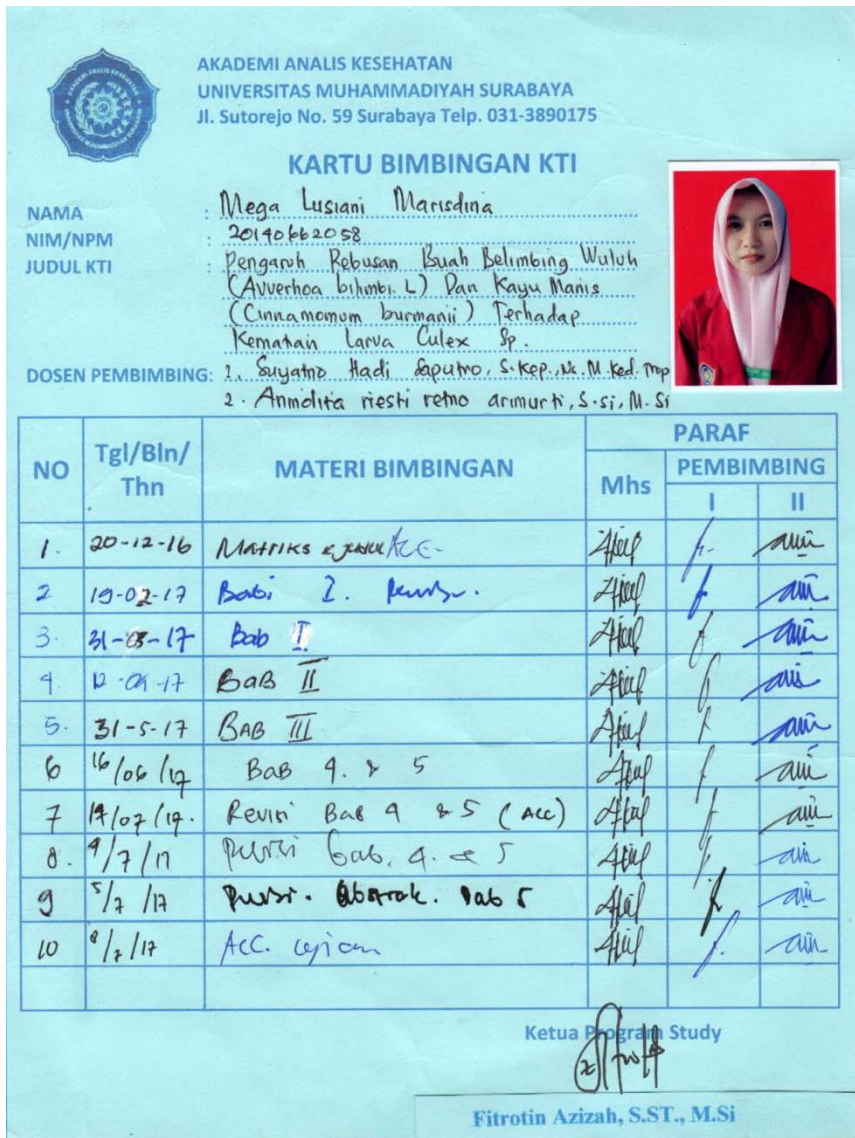 AKADEMI ANALIS KESEHATAN
UNIVERSITAS MUHAMMADIYAH SURABAYA
Jl. Sutorejo No. 59 Surabaya Telp. 031-3890175
KARTU BIMBINGAN KTI
NAMA : Mega Lusiani Marisdina
NIM/NPM : 20140662058
JUDUL KTI : Pengaruh Rebusan Buah Belimbing Wuluh
(Avverhoa bilimbi. L) Dan Kayu Manis
(Cinnamomum burmanii) Terhadap
Kematian Larva Culex Sp.
DOSEN PEMBIMBING: 1. Suyatno Hadi Saputro, S.Kep., Ns. M.Ked. Trop
2. Anindita riesti retno arimurti, S.si, M.Si
NO Tgl/Bln/Thn MATERI BIMBINGAN PARAF
Mhs PEMBIMBING
I II
1. 20-12-16 Matriks & Acc.
2 19-02-17 Bab I.
3. 31-03-17 Bab II
4. 12-04-17 BaB II
5. 31-5-17 BAB III
6 16/06/17 BaB 4. & 5
7 14/07/17. Revisi Bab 4 & 5 (Acc)
8. 4/7/17 Revisi bab. 4. & 5
9 5/7/17 Revisi. Abstrak. bab 5
10 8/7/17 Acc. ujian
Ketua Program Study
Fitrotin Azizah, S.ST., M.Si